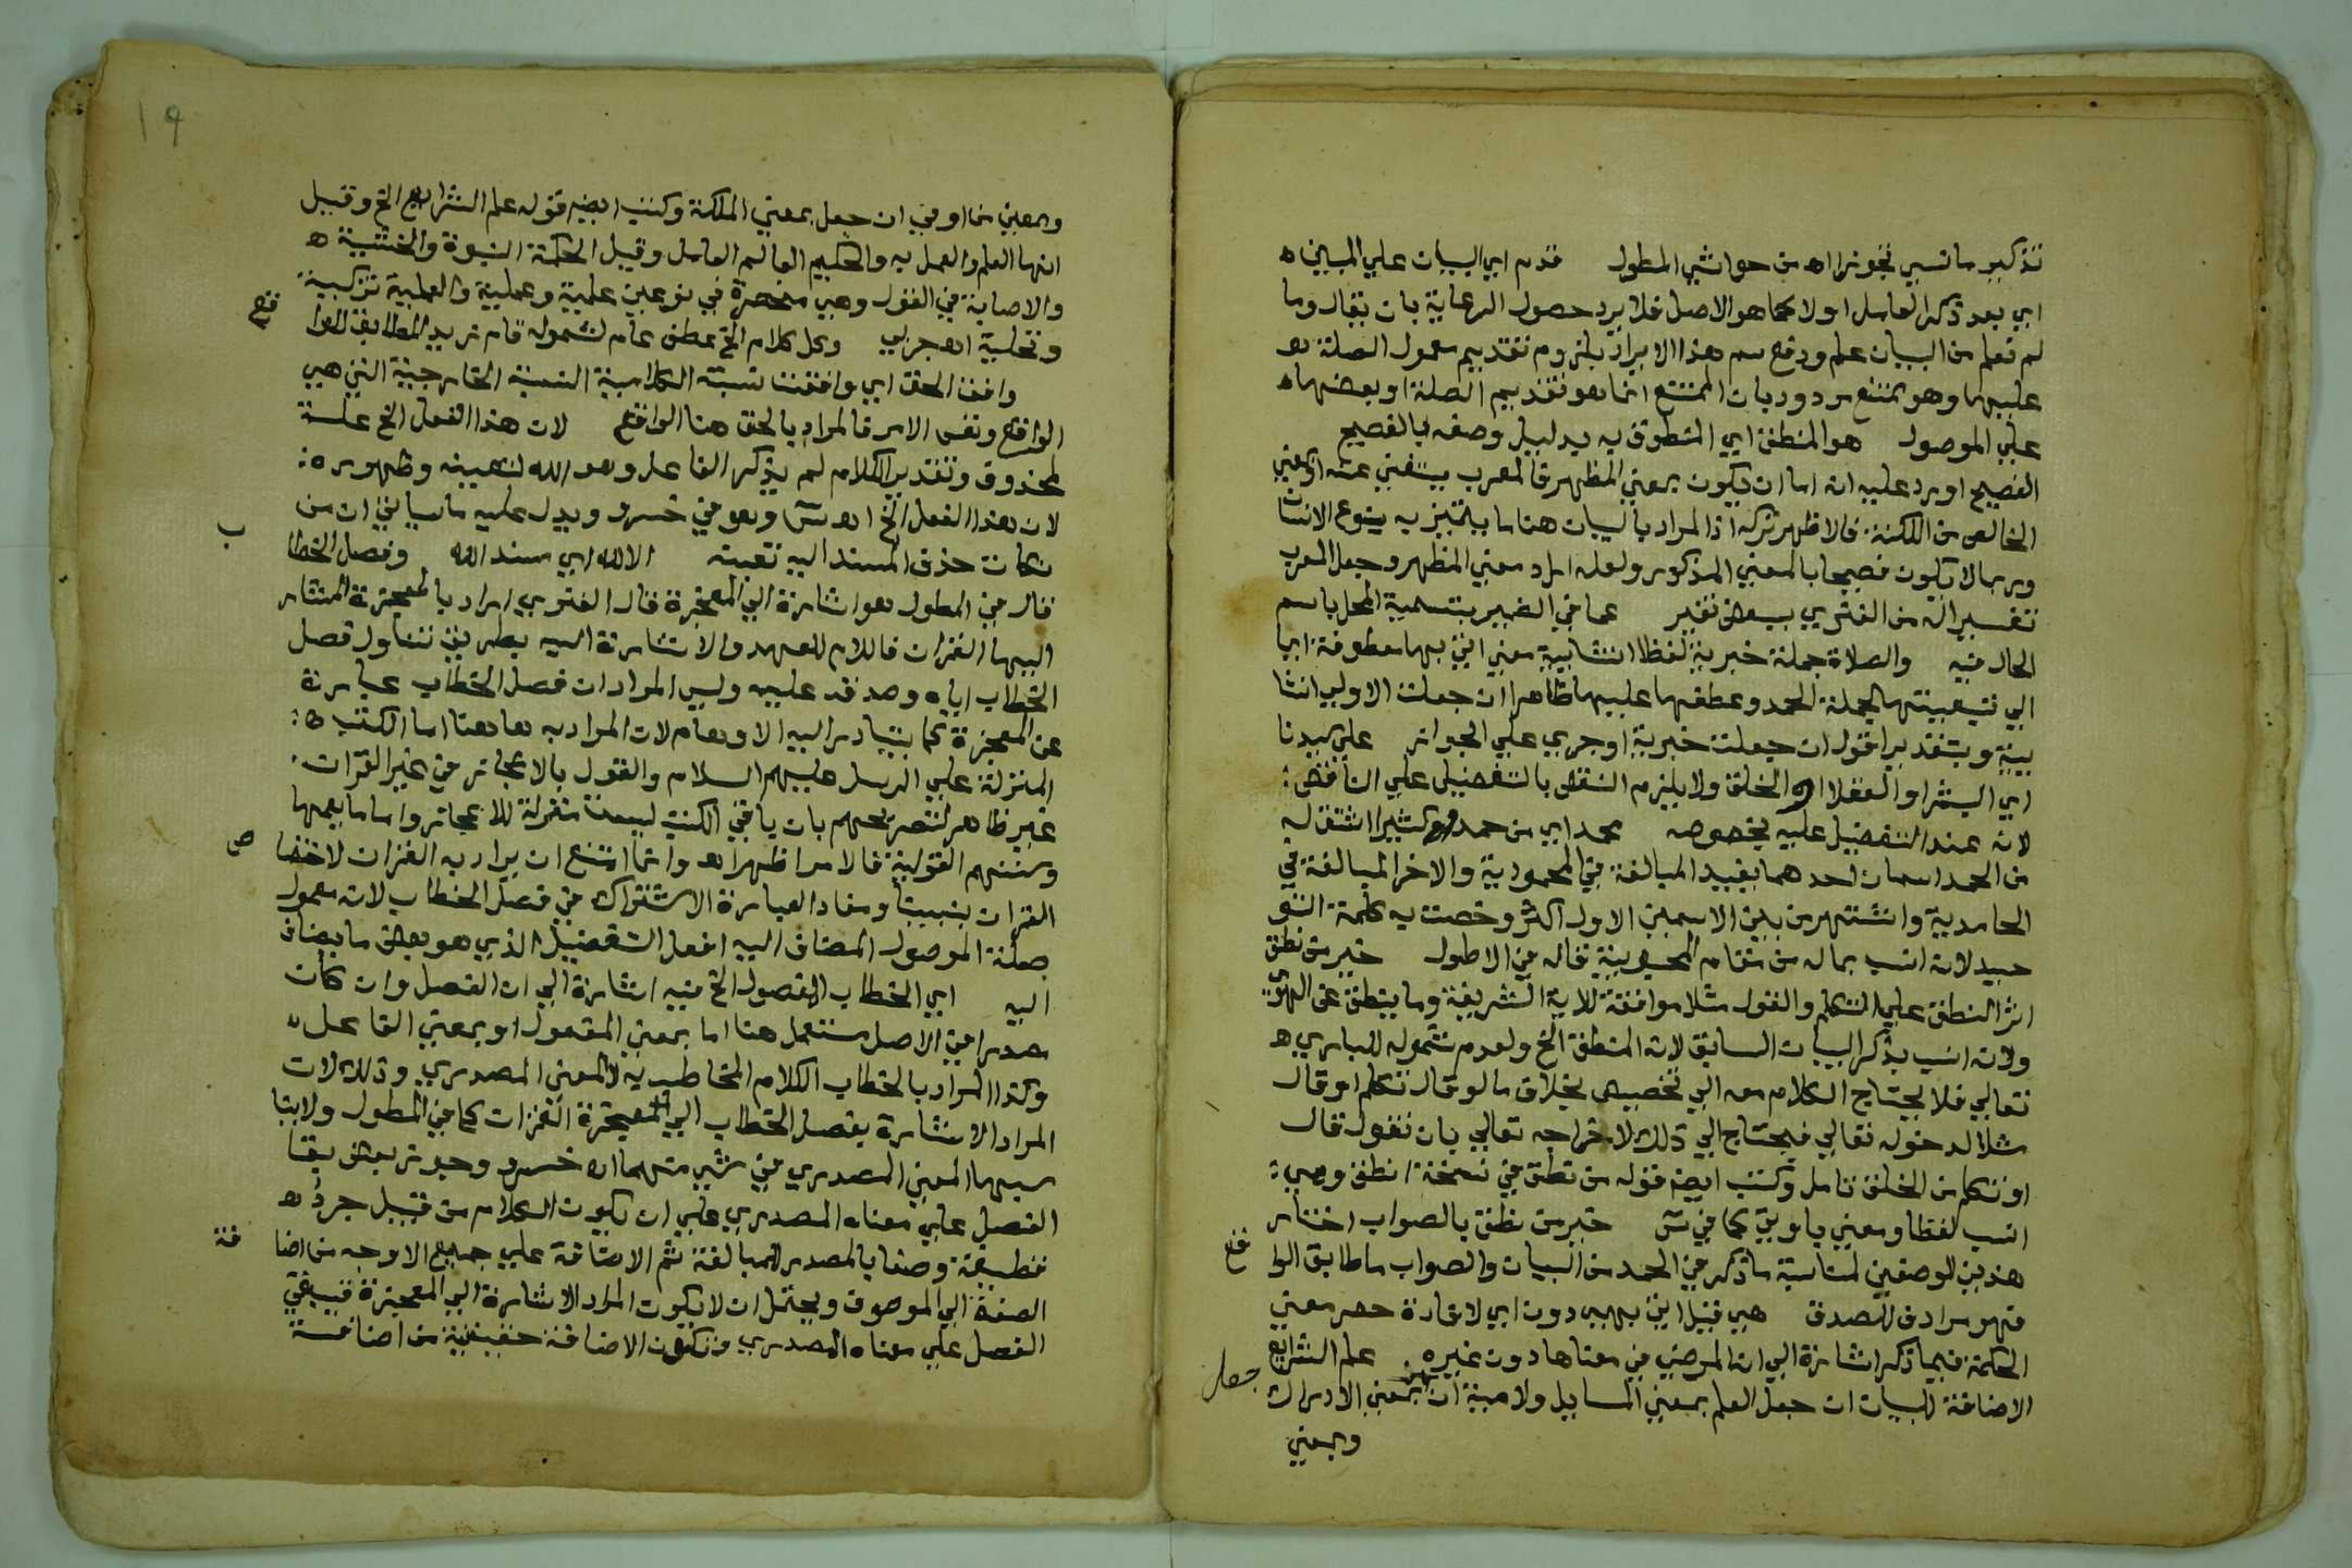 تذكير ما نسي نجونزا اه من حواشي المطول قدم اي البيان علي المبين ه
اي بعد ذكر العامل اولا كما هو الاصل فلا يرد حصول الرعاية بان يقال وما
لم نعلم من البيان علم ودفع سم هذا الايراد بلزوم تقديم معمول الصلة هو
عليهما وهو ممتنع مردود بان الممتنع انما هو تقديم الصلة او بعضها ه
علي الموصول هو المنطق اي المنطوق به بدليل وصفه بالفصيح
الفصيح اورد عليه انه اما ان يكون بمعني المظهر فالمعرب يستغني عنه او بمعني
الخالص من اللكنة فالاظهر تركه اذ المراد بالبيان هنا ما يتميز به نوع الانسان
وربما لا يكون فصيحا بالمعني المذكور ولعله اراد معني المظهر وجعل المعرب
تفسيرا له من الفنري ببعض تغيير عما في الضمير بتسمية المحل باسم
الحال فيه والصلاة جملة خبرية لفظا انشائية معني اتي بها معطوفة اي
الي تبعيتها لجملة الحمد وعطفها عليها ظاهر ان جعلت الاولي انشا
ئية وبتقدير اقول ان جعلت خبرية او جري علي الجواز علي سيدنا
اي البشر او العقلا او الخلق ولا يلزم النقص بالتفضيل علي الناقص :
لانه عند التفضيل عليه بخصوصه محمد اي من حمد كثيرا اشتق له
من الحمد اسمان احدهما يفيد المبالغة في المحمودية والاخر المبالغة في
الحامدية واشتهر من بين الاسمين الاول اكثر وخصت به كلمة التو
حيد لانه انسب بماله من مقام المحبوبية قاله في الاطول خير من نطق
اثر النطق علي التكلم والقول مثلا موافقة للاية الشريفة وما ينطق عن الهوي
ولانه انسب بذكر البيان السابق لانه المنطق الخ ولعدم شموله للباري ه
تعالي فلا يحتاج الكلام معه الي تخصيص بخلاف ما لو قال تكلم او قال
مثلا لدخوله تعالي فيحتاج الي ذلك لاخراجه تعالي بان نقول قال
او تكلم من الخلق تامل وكتب ايضا قوله من نطق في نسخة انطق وهي :
انسب لفظا ومعني بأوتي كما في س خير من نطق بالصواب اختار
هذين الوصفين لمناسبة ما ذكر في الحمد من البيان والصواب ما طابق الوا قع
فهو مرادف للصدق هي قيل اتي بهي دون اي لافادة حصر معني
الحكمة فيما ذكر اشارة الي انه المرضي في معناها دون غيره علم الشرايع
الاضافة للبيان ان جعل العلم بمعني المسايل ولامية ان جعل بمعني الادراك
وبمعني
١٩
وبمعني من او في ان جعل بمعني الملكة وكتب ايضا قوله علم الشرايع الخ وقيل
انها العلم والعمل به والحكيم العالم العامل وقيل الحكمة النبوة والخشية ه
والاصابة في القول وهي منحصرة في نوعين علمية وعملية والعملية تزكية
وتحلية اه جربي وكل كلام الخ عطف عام لشموله فام نريد المطابقة للوا قع
وافق الحق اي وافقت نسبته الكلامية النسبة الخارجية التي هي
الواقع ونفس الامر فالمراد بالحق هنا الواقع لان هذا الفعل الخ علة
لمحذوف وتقدير الكلام لم يذكر الفاعل وهو الله لتعيينه وظهوره :
لان هذا الفعل الخ اه س وهو في خسرو ويدل عليه ما سياتي ان من
نكات حذف المسند اليه تعينه الا لله اي مسند الله وفصل الخطا ب
قال في المطول هو اشارة الي المعجزة قال الفنري اراد بالمعجزة المشار
اليها القران فاللام للعهد والاشارة اليه بطريق تناول فصل
الخطاب اياه وصدقه عليه وليس المراد ان فصل الخطاب عبارة
عن المعجزة كما يتبادر اليه الاوهام لان المراد به هاهنا اما الكتب ه :
المنزلة علي الرسل عليهم السلام والقول بالاعجاز في غير القران
غير ظاهر لتصريحهم بان باقي الكتب ليست منزلة للاعجاز واما ما يعمها
وسننهم القولية فالامر اظهر اه وانما امتنع ان يراد به القران لاختصا ص
القران بنبينا ومفاد العبارة الاشتراك في فصل الخطاب لانه معمول
صلة الموصول المضاف اليه افعل التفضيل الذي هو بعض ما يضاف
اليه اي الخطاب المفصول الخ فيه اشارة الي ان الفصل وان كان
مصدرا في الاصل مستعمل هنا اما بمعني المفعول او بمعني الفاعل
وكذا المراد بالخطاب الكلام المخاطب به لا المعني المصدري وذلك لان
المراد الاشارة بفصل الخطاب الي المعجزة القران كما في المطول ولا ينا
سبها المعني المصدري في شي منهما اه خسرو وجوز بعض بقا
الفصل علي معناه المصدري علي ان يكون الكلام من قبيل جرد ه
قطيفة وصفا بالمصدر للمبالغة ثم الاضافة علي جميع الاوجه من اضا فة
الصفة الي الموصوف ويحتمل ان لا يكون المراد الاشارة الي المعجزة فيبقي
الفصل علي معناه المصدري وتكون الاضافة حقيقية من اضافة